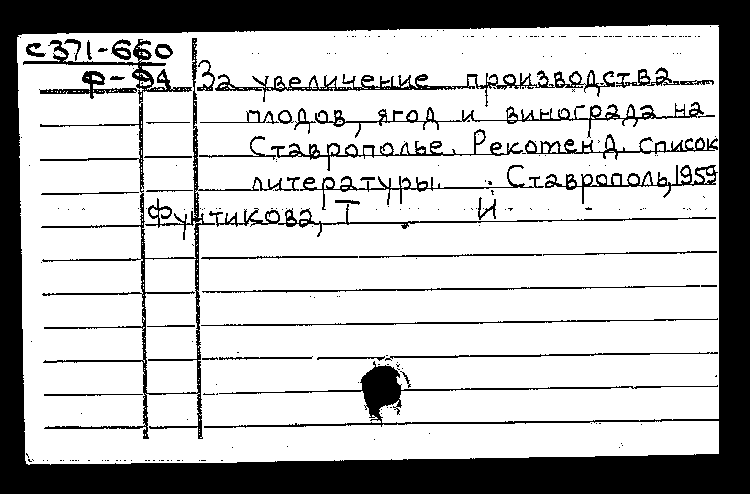 с371-660
Ф-94 За увеличение производства
плодов, ягод и винограда на
Ставрополье. Рекомен.д. список
литературы. Ставрополь, 1959
Фунтикова, Т И